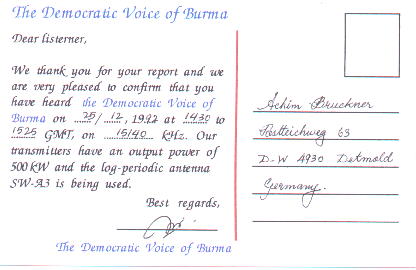 The Democratic Voice of Burma
Dear listerner,
We thank you for your report and we
are very pleased to confirm that you
have heard the Democratic Voice of
Burma on 25/12, 1992 at 1430 to
1525 GMT, on 15140 kHz. Our
transmitters have an output power of
500 kW and the log-periodic antenna
SW-A3 is being used.
Best regards,
The Democratic Voice of Burma
Achim Brückner
Postteichweg 63
D-W 4930 Detmold
Germany.